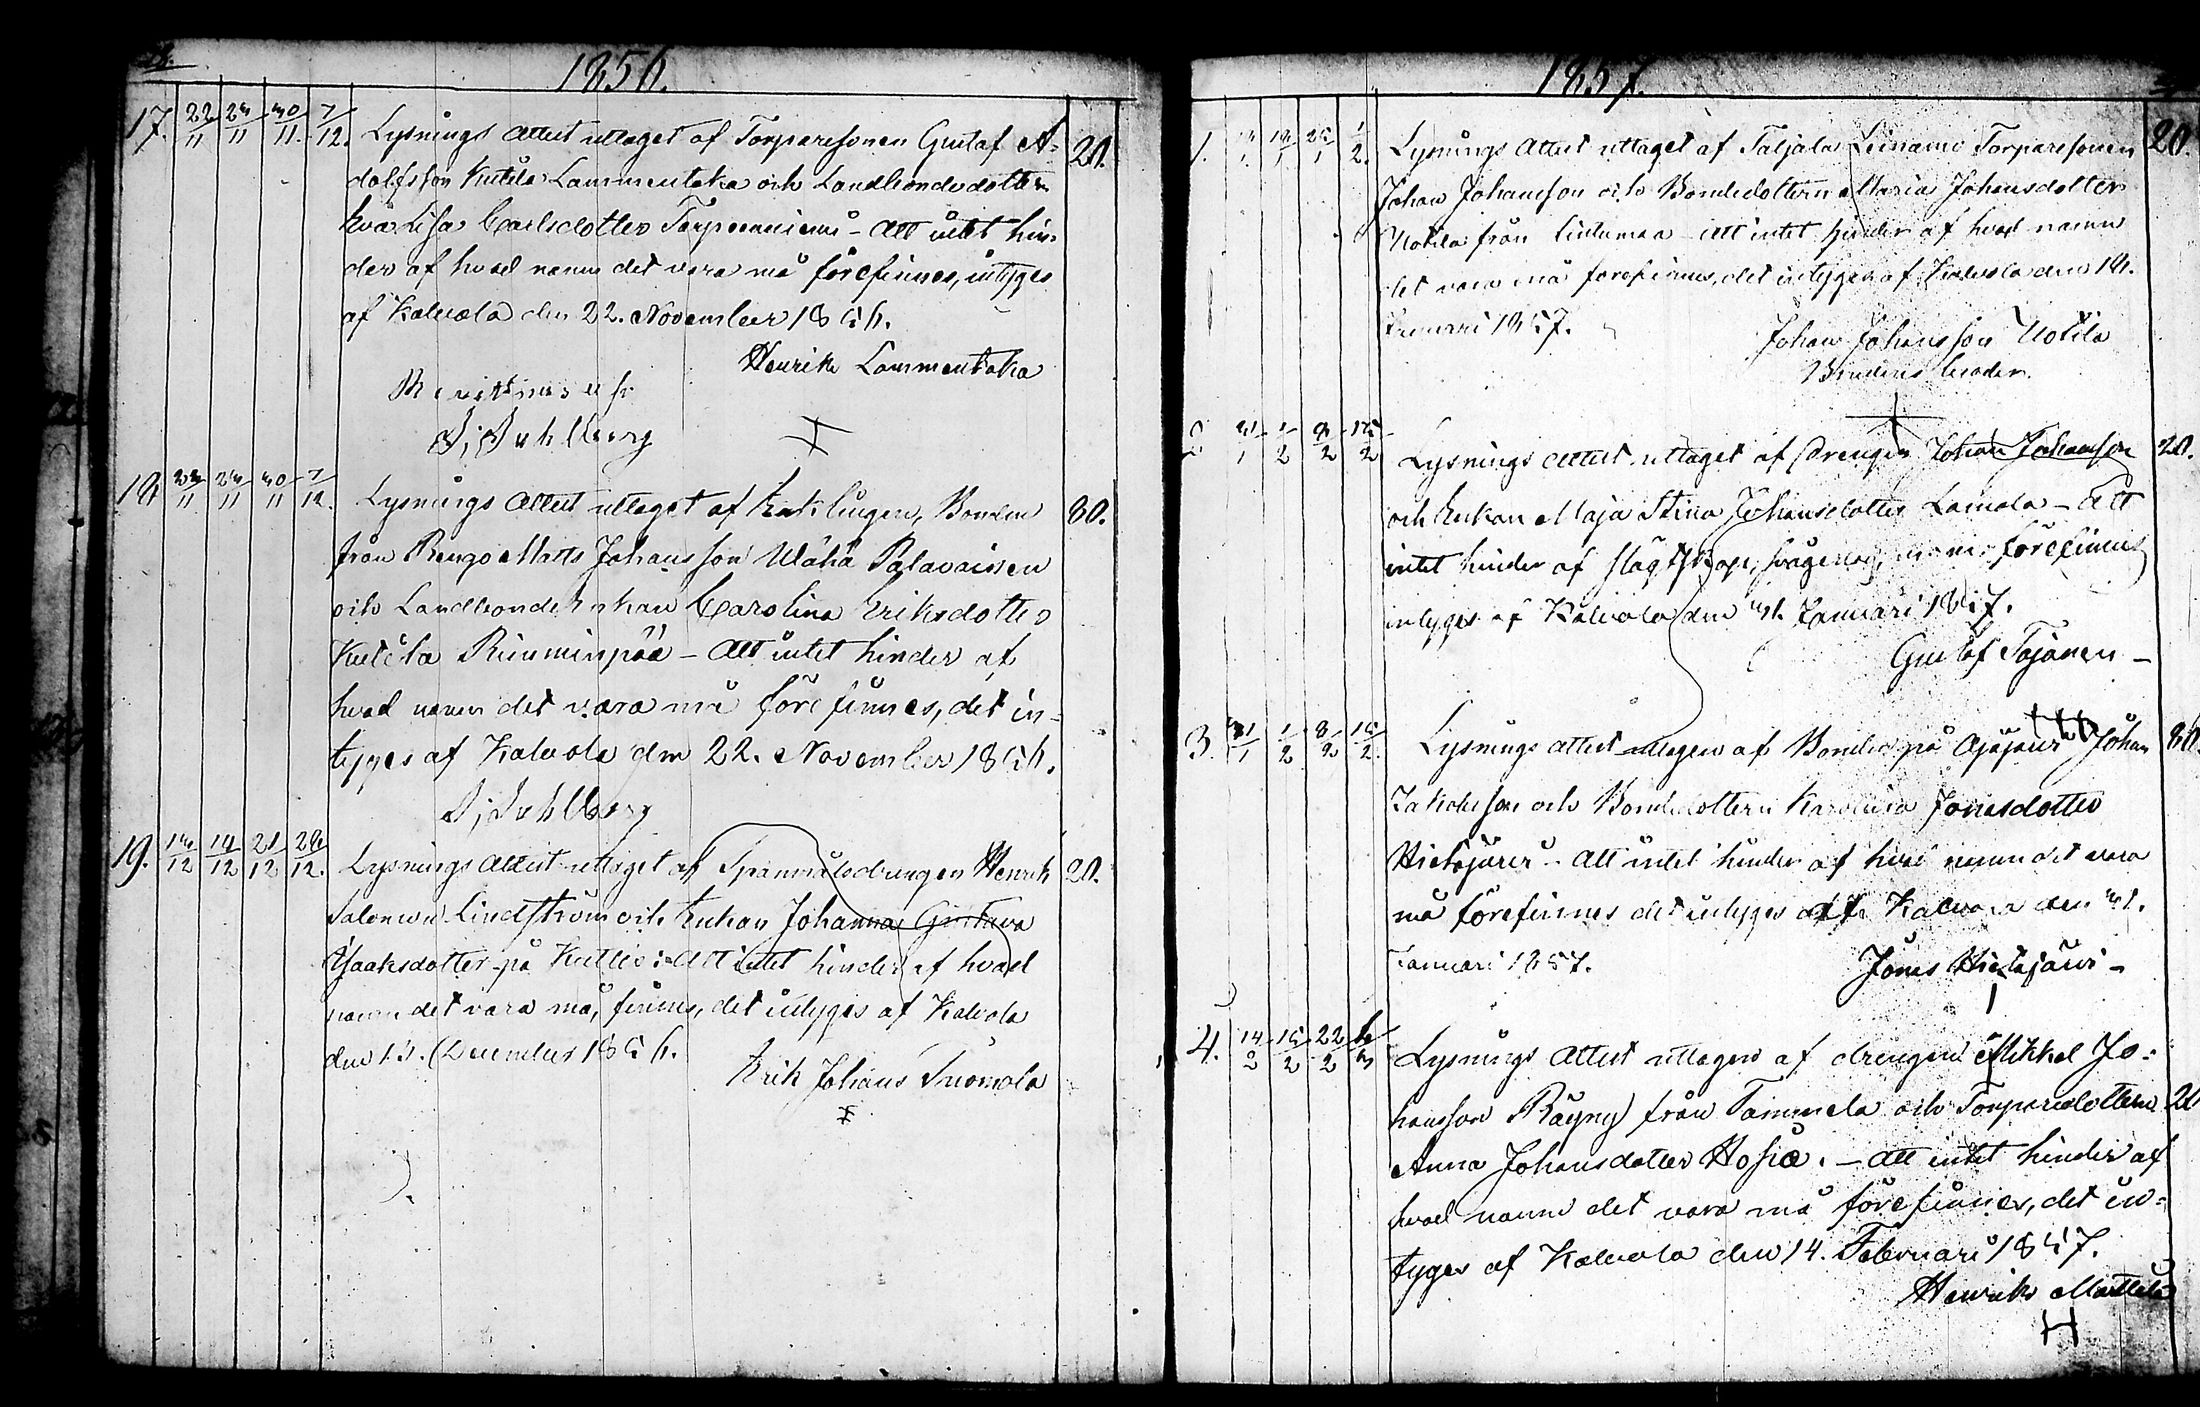 1856.
17. 22/11 23/11 30/11. 7/12. Lysnings Attest uttaget af Torparesonen Gustaf A- 20.
dolfsson Kutila Lammentaka och Landbondedottern
Eva Lisa Carlsdotter Torpanniemi - Att intet hin-
der af hvad namn det vara må förefinnes, intyges
af Kalvola den 22. November 1856.
Henrik Lammentaka
S. Sahlberg
18 22/11 23/11 30/11 7/12. Lysnings Attest uttaget af Enklingen, Bonden 80.
från Rengo Matts Johansson Wähä Palavainen
och Landbondeenkan Carolina Eriksdotter
Kutila Riuminpää - Att intet hinder af
hvad namn det vara må förefinnes, det in-
tyges af Kalvola den 22. November 1856.
S. Sahlberg
19. 13/12 14/12 21/12 28/12. Lysnings Attest uttaget af Spannmålsdrengen Henrik 20.
Salomon Lindström och Enkan Johanna Gustava
Isaksdotter på Kutila: Att intet hinder af hvad
namn det vara må, finnes, det intyges af Kalvola
den 13. December 1856.
Erik Johans Suomola
1857.
1. 18/1 25/1 1/2. Lysnings Attest uttaget af Taljala Leiniemi Torparesonen 20.
Johan Johansson och Bondedottern Maria Johansdotter
Uotila från Lintumaa - Att intet hinder af hvad namn
det vara må förefinnes, det intyges af Kalvola den
Januari 1857.
Johan Johansson Uotila
Brudens broder.
2 31/1 1/2 8/2 15/2 Lysnings Attest uttaget af Drengen Johan Johansson 20.
och Enkan Maja Stina Johansdotter Lamala - Att
intet hinder af slägtskap, svågerlag, förefinnes
intyges af Kalvola den 31. Januari 1857.
Gustaf Tojanen -
3. 31/1 1/2 8/2 15/2. Lysnings Attest uttagen af Bonden på Ajäjärvi Johan 80.
Jakobsson och Bondedottern Karolina Jonasdotter
Hietajärvi - Att intet hinder af hvad namn det vara
må förefinnes det intyges af Kalvola den 31.
Januari 1857.
Jonas Hietajärvi -
4. 14/2 15/2 22/2 Lysnings Attest uttagen af drengen Mikkel Jo-
hansson Räyny från Tammela och Torparedottern 20
Anna Johansdotter Hosia. - Att intet hinder af
hvad namn det vara må förefinnes, det in-
tyges af Kalvola den 14. Februari 1857.
Henrik Mattila
H